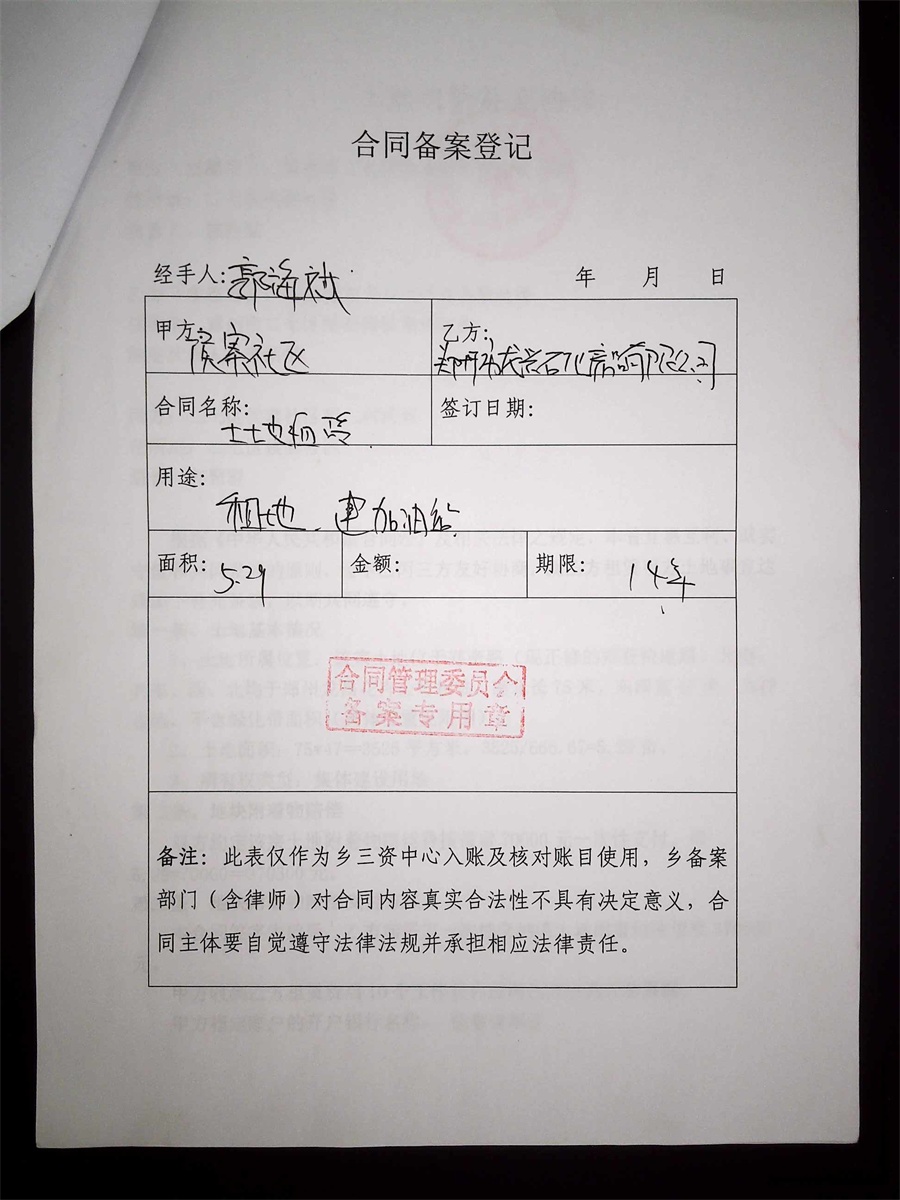 合同备案登记
经手人:郭海斌 年 月 日
甲方: 侯寨社区
乙方: 郑州市 石化 有限公司
合同名称: 土地
签订日期:
用途: 租地、建加油站
面积: 5.29
金额:
期限: 14年
合同管理委员会
备案专用章
备注:此表仅作为乡三资中心入账及核对账目使用,乡备案
部门(含律师)对合同内容真实合法性不具有决定意义,合
同主体要自觉遵守法律法规并承担相应法律责任。